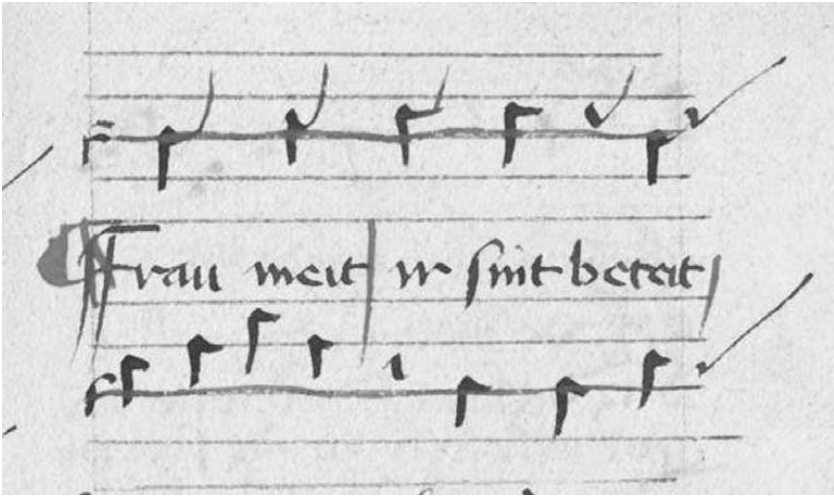 Frau meit ir sint bereit